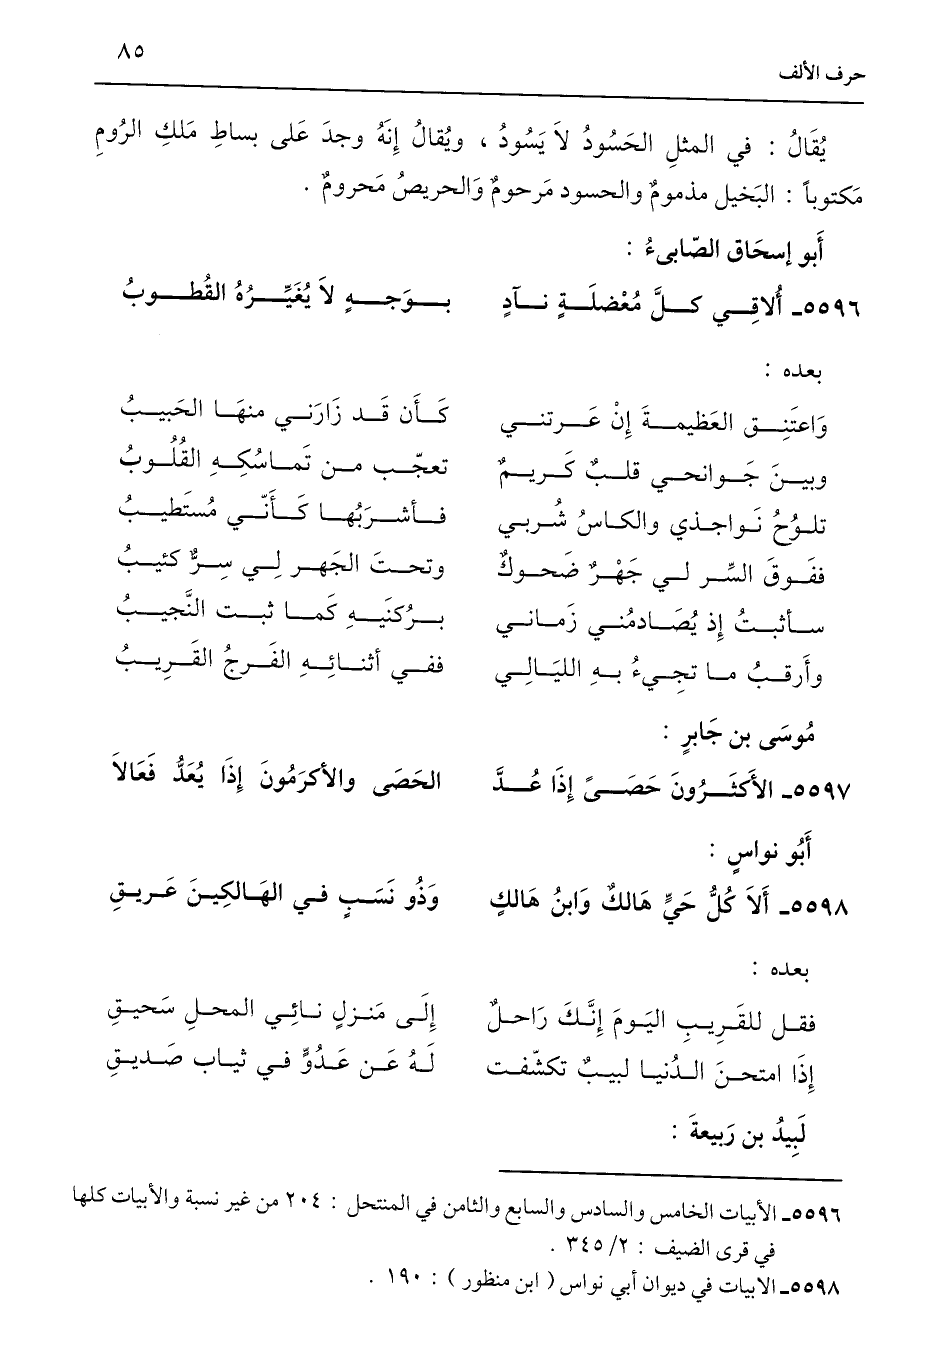 ٨٥
حرف الألف
يُقَالُ : في المثلِ الحَسُودُ لاَ يَسُودُ ، ويُقالُ إنَهُ وجدَ عَلى بساطِ مَلكِ الرُومِ
مَكتوباً : البَخيل مذمومٌ والحسود مَرحومٌ وَالحريصُ مَحرومٌ .
أَبو إسحَاق الصّابىءُ :
٥٥٩٦ـ أُلاقِي كلَّ مُعْضلَةٍ نآدٍ بوَجهٍ لاَ يُغَيِّرُهُ القُطوبُ
بعده :
وَاعتَنِق العَظيمةَ إنْ عَرتني كَأَن قَد زَارَني منهَا الحَبيبُ
وبينَ جَوانحي قلبٌ كَريمٌ تعجّب من تَماسُكهِ القُلُوبُ
تلوُحُ نَواجذي والكاسُ شُربي فأشرَبُها كَأنّي مُستَطيبُ
ففَوقَ السِّر لي جَهْرٌ ضَحوكٌ وتحتَ الجَهر لِي سِرٌّ كئيبُ
سأثبتُ إذ يُصَادمُني زَماني برُكنَيهِ كَما ثبت النَّجيبُ
وأَرقبُ ما تجِيءُ بهِ الليَالِي ففي أثنائهِ الفَرجُ القَرِيبُ
مُوسَى بن جَابرٍ :
٥٥٩٧ـ الأَكثَرُونَ حَصَىً إِذَا عُدَّ الحَصَى والأكرَمُونَ إذَا يُعَدُّ فَعَالاَ
أَبُو نواسٍ :
٥٥٩٨ـ أَلاَ كُلُّ حَيٍّ هَالكٌ وَابنُ هَالكٍ وَذُو نَسَبٍ في الهَالكِينَ عَريقِ
بعده :
فقل للقَرِيبِ اليَومَ إنَّكَ رَاحلٌ إلَى مَنزلٍ نائِي المحلِ سَحيقِ
إذَا امتحنَ الدُنيا لبيبٌ تكشّفت لَهُ عَن عَدُوٍّ في ثياب صَديقِ
لَبِيدُ بن رَبِيعةَ :
٥٥٩٦ـ الأبيات الخامس والسادس والسابع والثامن في المنتحل : ٢٠٤ من غير نسبة والأبيات كلها
في قرى الضيف : ٢/ ٣٤٥ .
٥٥٩٨ـ الابيات في ديوان أبي نواس ( ابن منظور ) : ١٩٠ .